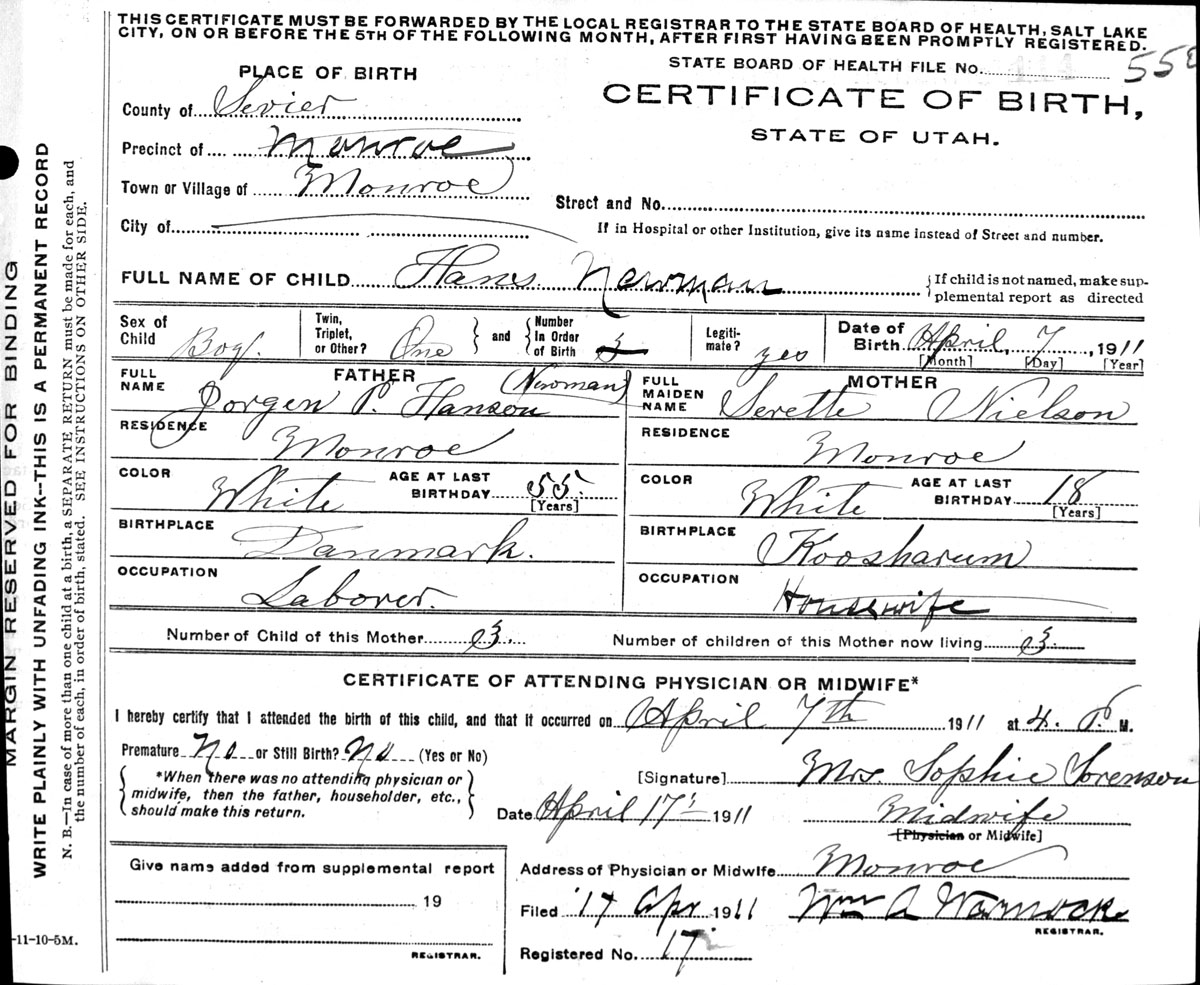 THIS CERTIFICATE MUST BE FORWARDED BY THE LOCAL REGISTRAR TO THE STATE BOARD OF HEALTH, SALT LAKE
CITY, ON OR BEFORE THE 5TH OF THE FOLLOWING MONTH, AFTER FIRST HAVING BEEN PROMPTLY REGISTERED.
STATE BOARD OF HEALTH FILE No.
PLACE OF BIRTH
CERTIFICATE OF BIRTH,
STATE OF UTAH.
County of Sevier
Precinct of Monroe
Town or Village of Monroe
Street and No.
City of
If in Hospital or other Institution, give its name instead of Street and number.
FULL NAME OF CHILD Hans Newman
{If child is not named, make sup-
plemental report as directed
Sex of Child Boy. Twin, Triplet, or Other? One and Number In Order of Birth 3 Legiti-mate? yes Date of Birth April, 7, 1911
[Month] [Day] [Year]
FATHER
FULL NAME Jorgen P. Hanson (Newman)
RESIDENCE Monroe
COLOR White AGE AT LAST BIRTHDAY 55. [Years]
BIRTHPLACE Danmark.
OCCUPATION Laborer.
MOTHER
FULL MAIDEN NAME Serette Nielson
RESIDENCE Monroe
COLOR White AGE AT LAST BIRTHDAY 18 [Years]
BIRTHPLACE Koosharum
OCCUPATION Housewife
Number of Child of this Mother 3. Number of children of this Mother now living 3.
CERTIFICATE OF ATTENDING PHYSICIAN OR MIDWIFE*
I hereby certify that I attended the birth of this child, and that it occurred on April 7th 1911 at 4. P. M.
Premature No or Still Birth? No (Yes or No)
{*When there was no attending physician or
midwife, then the father, householder, etc.,
should make this return.}
[Signature] Mrs. Sophie Sorenson
Date April 17 1911 Midwife
[Physician or Midwife]
Give name added from supplemental report
19
REGISTRAR.
Address of Physician or Midwife Monroe
Filed 17 Apr 1911 Wm A Warnock
REGISTRAR.
Registered No. 17
-11-10-5M.
MARGIN RESERVED FOR BINDING
WRITE PLAINLY WITH UNFADING INK--THIS IS A PERMANENT RECORD
N. B.—In case of more than one child at a birth, a SEPARATE RETURN must be made for each, and
the number of each, in order of birth, stated. SEE INSTRUCTIONS ON OTHER SIDE.